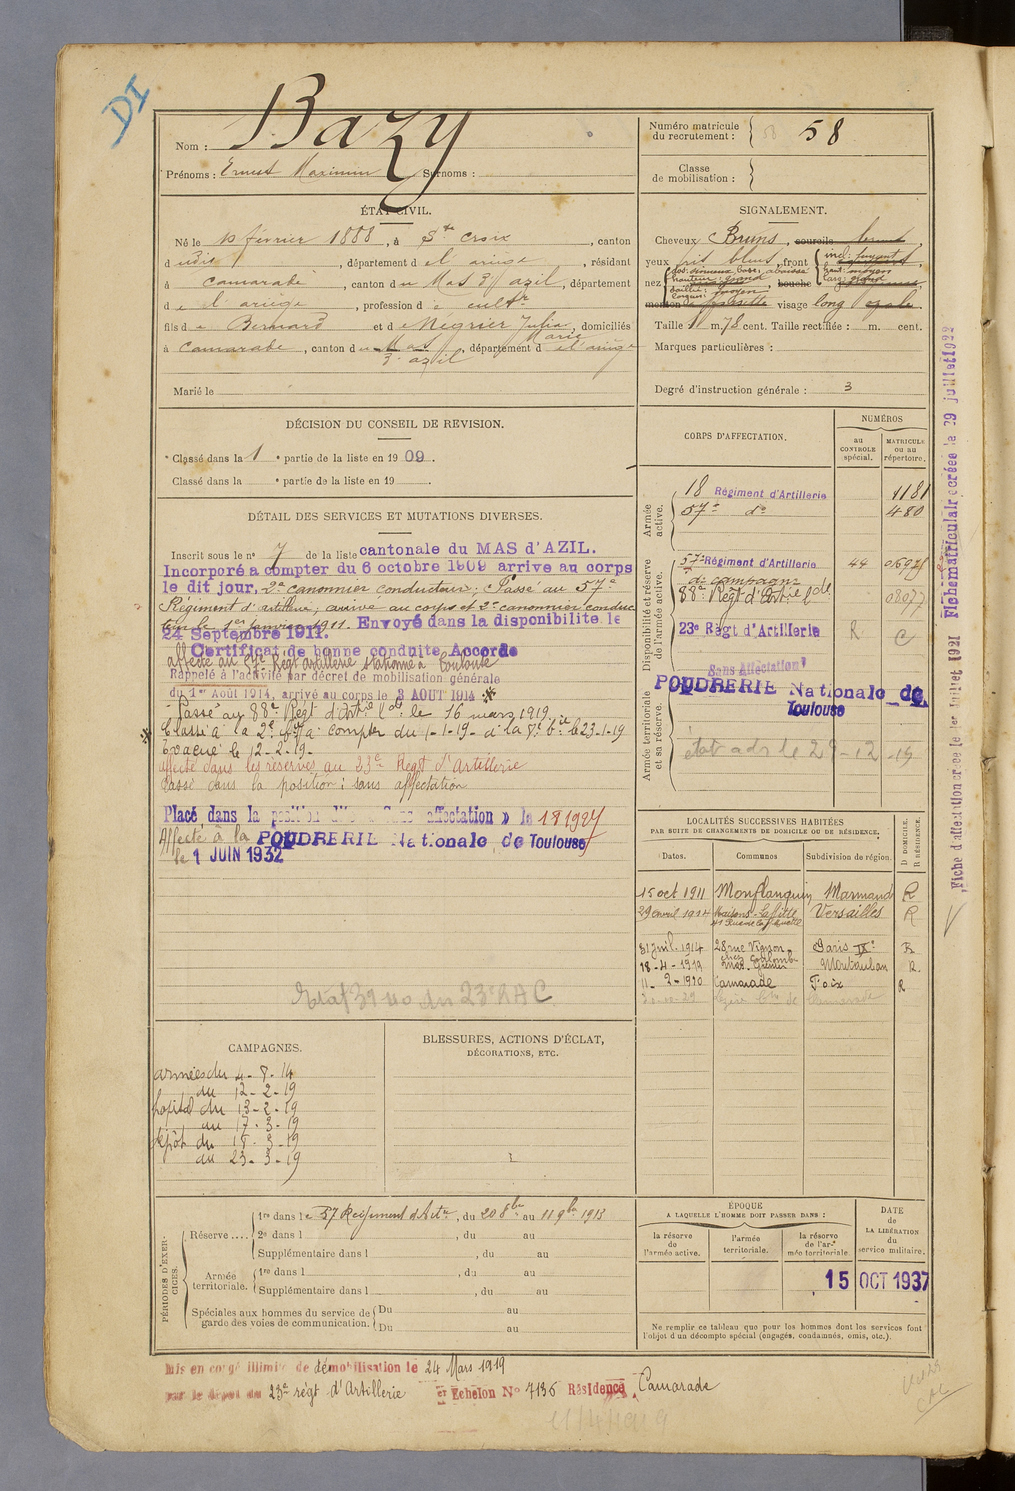 DI
Nom : Bazy
Prénoms : Ernest Maximin Surnoms :
Numéro matricule du recrutement : 58
Classe de mobilisation :
ÉTAT CIVIL.
Né le 10 février 1888, à Ste Croix, canton
d, département d e l'ariège, résidant
à camarade, canton du Mas d'azil, département
d e l'ariège, profession d e cultr
fils de Bernard et de Négrier Julia Marie, domiciliés
à camarade, canton du Mas d'azil, département d e l'ariège
Marié le
SIGNALEMENT.
Cheveux Bruns, sourcils
yeux gris bleus, front incl: fuyant
haut: moyen
larg: grand
nez dos: sinueux base: abaissé
hauteur: grand
saillie: moyen
largeur: moyen
bouche
menton visage long ovale.
Taille 1 m. 78 cent. Taille rectifiée : m. cent.
Marques particulières :
Degré d'instruction générale : 3
DÉCISION DU CONSEIL DE REVISION.
Classé dans la 1e partie de la liste en 1909.
Classé dans la e partie de la liste en 19 .
DÉTAIL DES SERVICES ET MUTATIONS DIVERSES.
Inscrit sous le n° 7 de la liste cantonale du MAS d'AZIL.
Incorporé à compter du 6 octobre 1909 arrive au corps
le dit jour, 2e canonnier conducteur; Passé au 57e
Régiment d'artillerie; arrivé au corps et 2e canonnier conduc
teur le 1er Janvier 1911. Envoyé dans la disponibilite le
24 Septembre 1911.
Certificat de bonne conduite Accordé
affecté au 57e Regt artillerie stationné à Toulouse
Rappelé à l'activité par décret de mobilisation générale
du 1er Août 1914, arrivé au corps le 3 AOUT 1914
Passé au 88e Regt d'Artie lde le 16 mars 1919
Classé à la 2e à compter du 1-1-19- d la 7e bie le 23-1-19
Evacué le 12-2-19-
affecté dans les réserves au 23e Regt d'Artillerie
Passé dans la position: sans affectation
Placé dans la position dite « Sans affectation » le 1 8 1927
Affecté à la POUDRERIE Nationale de Toulouse
le 1 JUIN 1932
Etat 39 du 23e RAC
CORPS D'AFFECTATION.
NUMÉROS
au CONTROLE spécial.
MATRICULE ou au répertoire.
Armée active.
18 Régiment d'Artillerie 1181
57e do 480
Disponibilité et réserve de l'armée active.
57e Régiment d'Artillerie 44
de campagne
88e Regt d'Artie lde
23e Régt d'Artillerie R C
Armée territoriale et sa réserve.
Sans Affectation
POUDRERIE Nationale de
Toulouse
état adr le 29-12-19
LOCALITÉS SUCCESSIVES HABITÉES
PAR SUITE DE CHANGEMENTS DE DOMICILE OU DE RÉSIDENCE.
Dates. Communes Subdivision de région. D DOMICILE. R RÉSIDENCE.
15 oct 1911 Monflanquin Marmande R
29 avril 1914 Maisons-Laffitte Versailles R
31 Juil. 1914 28 rue Vignon Paris IXe R
18-4-1919 Montauban R.
11-2-1920 Camarade Foix R
Camarade
CAMPAGNES.
armées du 4-8-14
au 12-2-19
hopital du 13-2-19
au 17-3-19
dépôt du 18-3-19
au 23-3-19
BLESSURES, ACTIONS D'ÉCLAT,
DÉCORATIONS, ETC.
PÉRIODES D'EXERCICES.
Réserve .... 1re dans le 57 Régiment d'Artie, du 20 8bre au 11 9bre 1913
2e dans l , du au
Supplémentaire dans l , du au
Armée territoriale. 1re dans l , du au
Supplémentaire dans l , du au
Spéciales aux hommes du service de garde des voies de communication. Du au
Du au
ÉPOQUE
A LAQUELLE L'HOMME DOIT PASSER DANS :
la réserve de l'armée active.
l'armée territoriale.
la réserve de l'armée territoriale.
DATE de LA LIBÉRATION du service militaire.
15 OCT 1937
Ne remplir ce tableau que pour les hommes dont les services font
l'objet d'un décompte spécial (engagés, condamnés, omis, etc.).
Mis en congé illimité de démobilisation le 24 Mars 1919
par le dépôt du 23e régt d'Artillerie et Echelon N° 7136 Résidence Camarade
Fiche d'affectation créée le 1er Juillet 1921 Fiche matriculaire créée le 29 juillet 1922